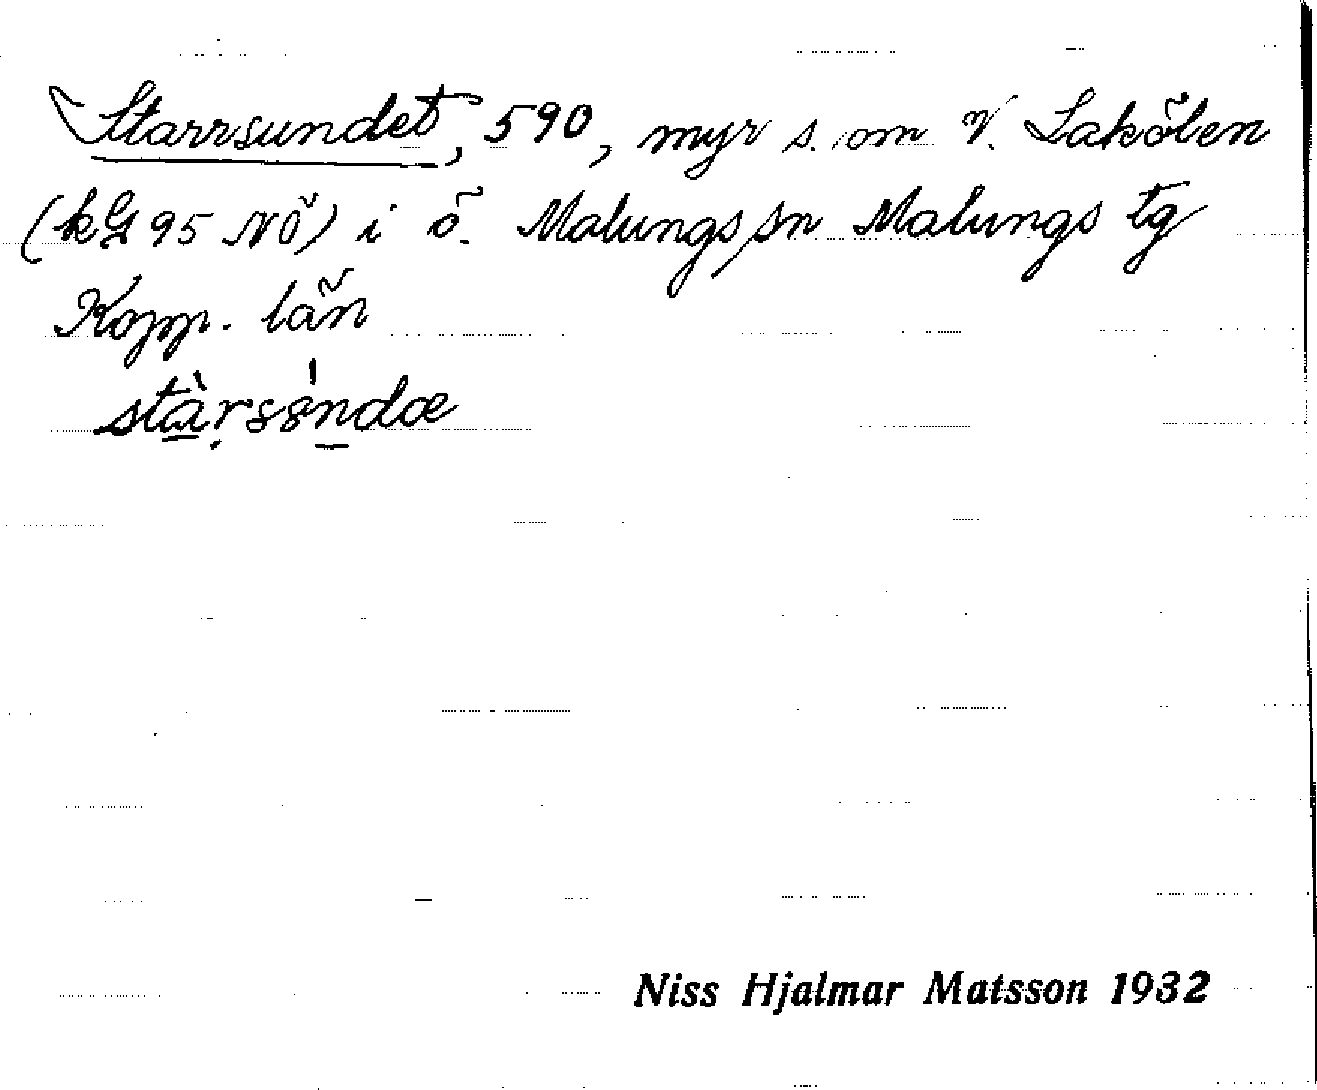 Starrsundet, 590, myr s. om V. Lakölen
(kG 95 NÖ) i ö. Malungs sn Malungs tg
Kopp. län
Niss Hjalmar Matsson 1932